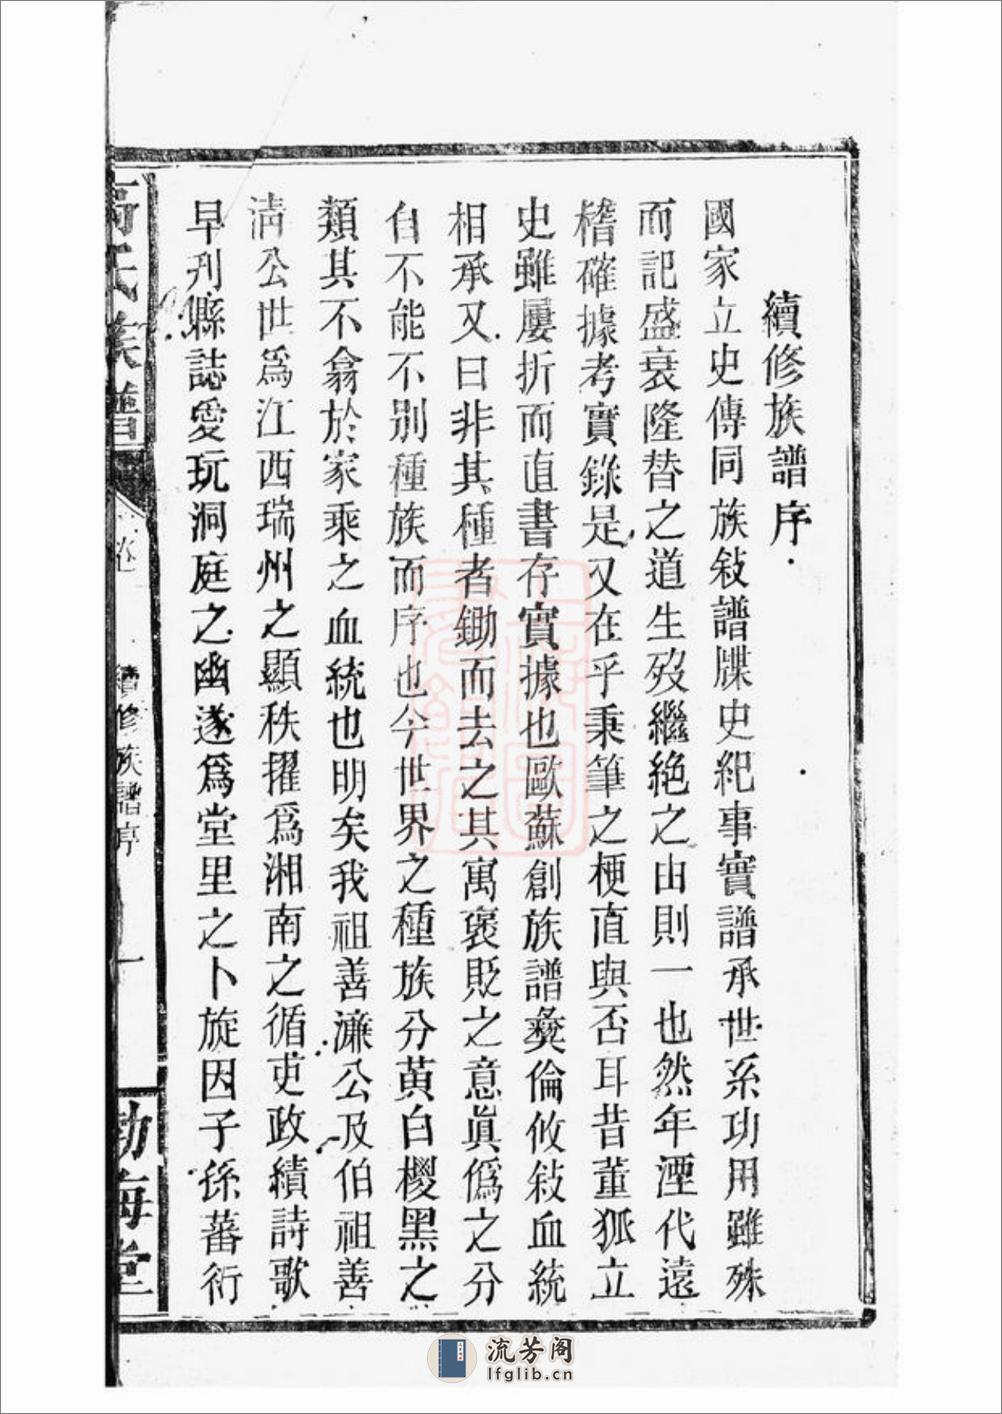 續修族譜序
國家立史傳同族敍譜牒史紀事實譜承世系功用雖殊
而記盛衰隆替之道生歿繼絶之由則一也然年湮代遠
稽確據考實錄是又在乎秉筆之梗直與否耳昔董狐立
史雖屢折而直書存實據也歐蘇創族譜彜倫攸敍血統
相承又曰非其種者鋤而去之其寓褒貶之意眞僞之分
自不能不别種族而序也今世界之種族分黃白椶黑之
類其不翕於家乘之血統也明矣我祖善濂公及伯祖善
淸公世爲江西瑞州之顯秩擢爲湘南之循吏政績詩歌
早刋縣誌愛玩洞庭之幽遂爲堂里之卜旋因子孫蕃衍
高氏族譜
續修族譜序
一
勃海堂
流芳阁
lfglib.cn